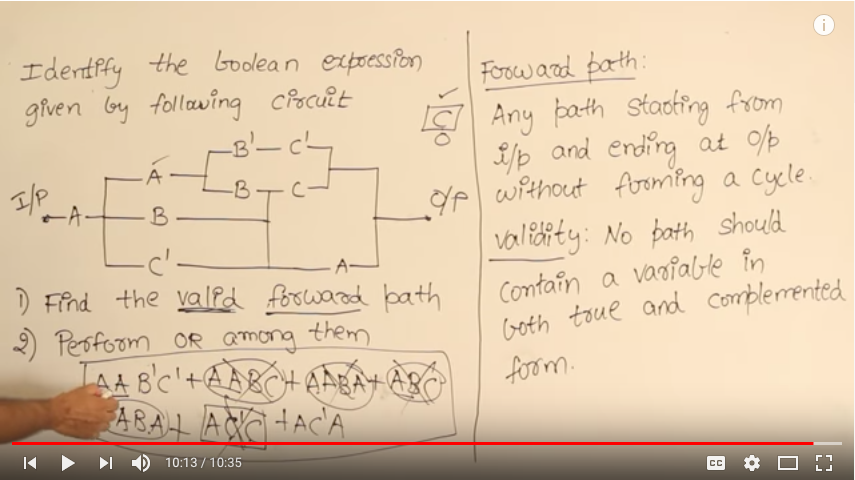 Identify the boolean expression
given by following circuit
C
0
B' C'
A
B C
I/P
A B
O/P
C' A
1) Find the valid forward path
2) Perform OR among them
AA B'C' + AABC + AABA + ABC
ABA + AC'C + AC'A
Forward path:
Any path starting from
i/p and ending at o/p
without forming a cycle.
validity: No path should
contain a variable in
both true and complemented
form.
i
10:13 / 10:35
CC